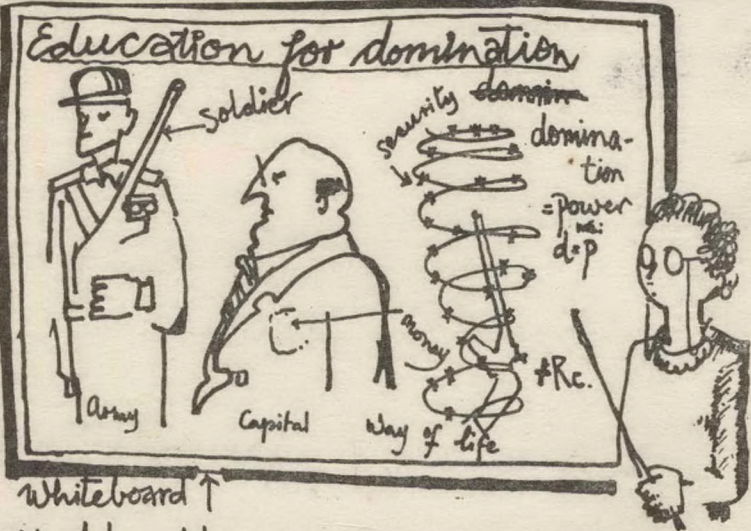 Education for domination
soldier
security
domina-
tion
= power
d=p
money
Army
Capital
Way of life
Whiteboard ↑